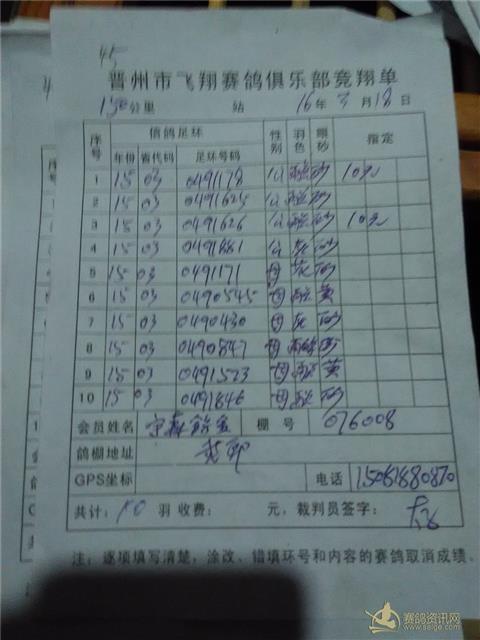 45
晋州市飞翔赛鸽俱乐部竞翔单
150公里 站 16年3月18日
序号 信鸽足环 性别 羽色 眼砂 指定
年份 省代码 足环号码
1 15 03 0491178 公 砂 10元
2 15 03 0491625 公 砂
3 15 03 0491626 公 砂 10元
4 15 03 0491881 公 灰 砂
5 15 03 0491171 母 灰 砂
6 15 03 0490545 母 黄
7 15 03 0490430 母 灰 砂
8 15 03 0490847 母
9 15 03 0491523 母 黄
10 15 03 0491846 母 砂
会员姓名 棚号 076008
鸽棚地址
GPS坐标 电话
共计:10羽 收费: 元,裁判员签字:
注:逐项填写清楚,涂改、错填环号和内容的赛鸽取消成绩、
赛鸽资讯网
www.saige.com